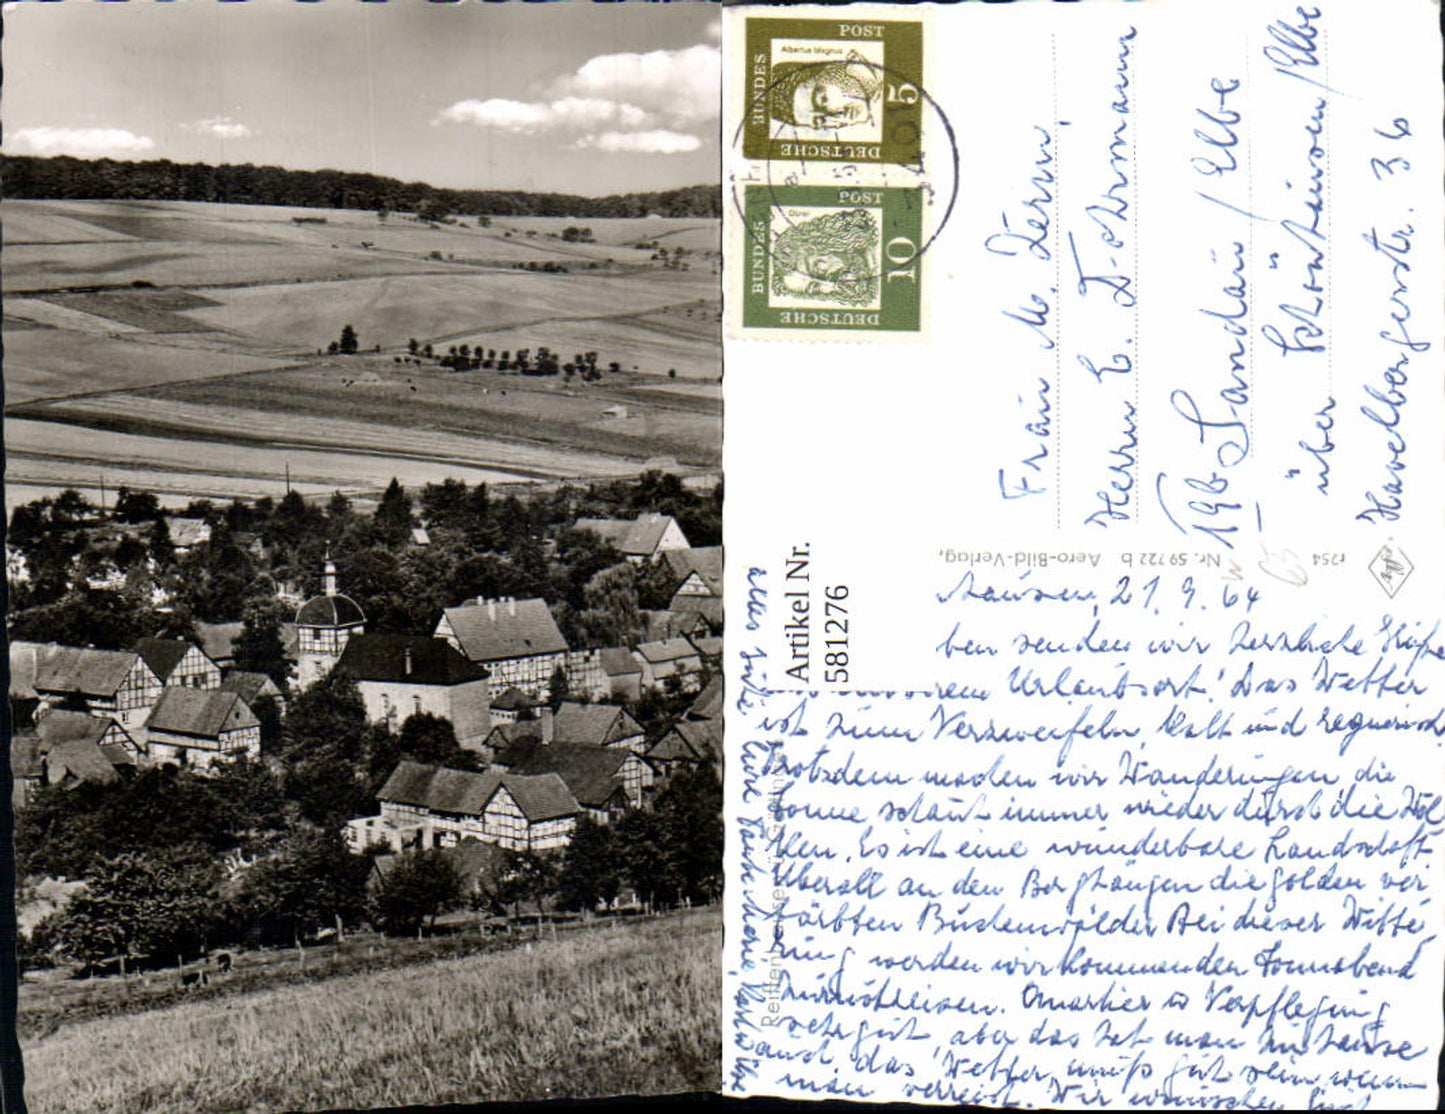 DEUTSCHE
BUNDES
POST
Albertus Magnus
5
DEUTSCHE
BUNDES
POST
Dürer
10
Frau M. Dern,
Herrn E.
196 Sandau / Elbe
über Schönhausen / Elbe
Havelbergerstr. 36
Artikel Nr.
581276
Nr. 59 722 b Aero-Bild-Verlag,
r254
Agfa
21. 9. 64
ben senden wir herzliche Grüße
Urlaubsort! Das Wetter
ist zum Verzweifeln, kalt und regnerisch
Trotzdem machen wir Wanderungen, die
Sonne schaut immer wieder durch die Wol
ken. Es ist eine wunderbare Landschaft.
Überall an den Berghängen die golden ver
färbten Buchenwälder. Bei dieser Witte
rung werden wir kommenden Sonnabend
zurückreisen. Quartier u Verpflegung
sehr gut, aber das hat man zu Hause
auch, das Wetter muß gut sein, wenn
man verreist. Wir wünschen Euch
alles Gute Eure